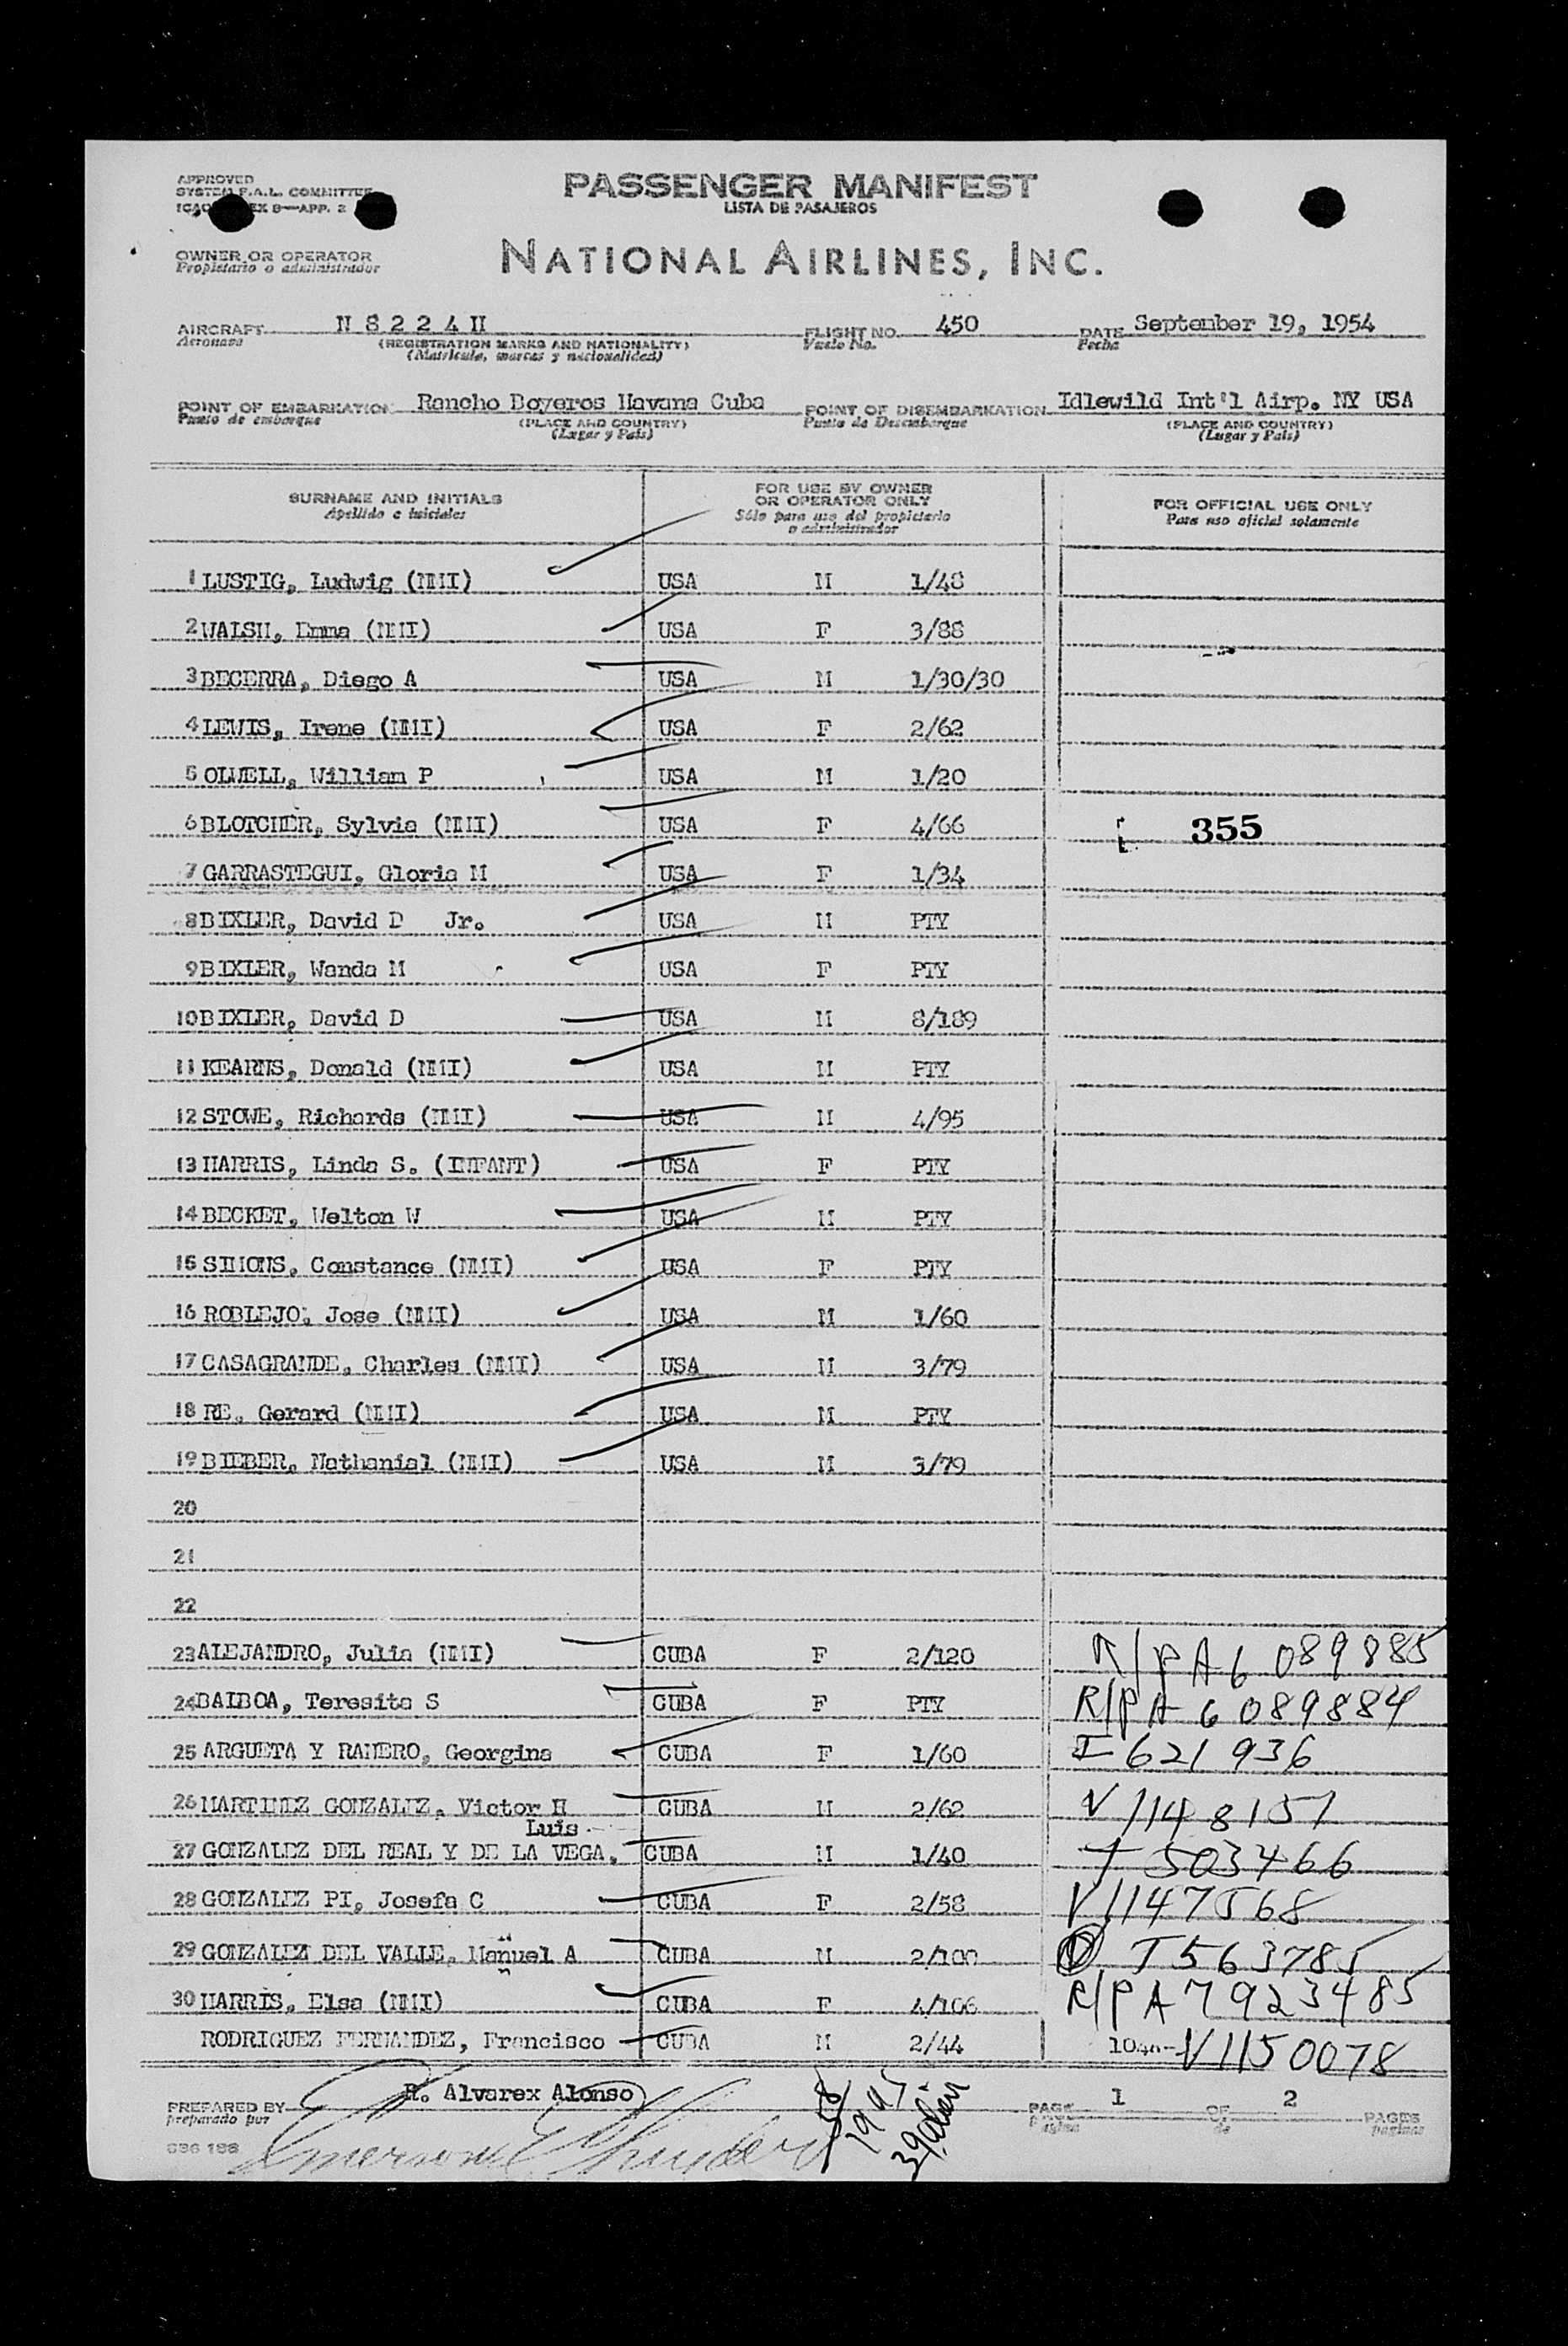 APPROVED
SYSTEM F.A.L. COMMITTEE
EX 9—APP. 2
PASSENGER MANIFEST
LISTA DE PASAJEROS
OWNER OR OPERATOR
Propietario o administrador
NATIONAL AIRLINES, INC.
AIRCRAFT N 8 2 2 4 H FLIGHT NO. 450 DATE September 19, 1954
Aeronave (REGISTRATION MARKS AND NATIONALITY) Vuelo No. Fecha
(Matrícula, marcas y nacionalidad)
POINT OF EMBARKATION Rancho Boyeros Havana Cuba POINT OF DISEMBARKATION Idlewild Int'l Airp. NY USA
Punto de embarque (PLACE AND COUNTRY) Punto de Desembarque (PLACE AND COUNTRY)
(Lugar y País) (Lugar y País)
SURNAME AND INITIALS FOR USE BY OWNER OR OPERATOR ONLY FOR OFFICIAL USE ONLY
Apellido e iniciales Sólo para uso del propietario o administrador Para uso oficial solamente
1 LUSTIG, Ludwig (NMI) USA M 1/48
2 WALSH, Emma (NMI) USA F 3/88
3 BECERRA, Diego A USA M 1/30/30
4 LEWIS, Irene (NMI) USA F 2/62
5 OLWELL, William P USA M 1/20
6 BLOTCHER, Sylvia (NMI) USA F 4/66 355
7 GARRASTEGUI, Gloria M USA F 1/34
8 BIXLER, David D Jr. USA M PTY
9 BIXLER, Wanda M USA F PTY
10 BIXLER, David D USA M 8/189
11 KEARNS, Donald (NMI) USA M PTY
12 STOWE, Richards (NMI) USA M 4/95
13 HARRIS, Linda S. (INFANT) USA F PTY
14 BECKET, Welton W USA M PTY
15 SIMONS, Constance (NMI) USA F PTY
16 ROBLEJO, Jose (NMI) USA M 1/60
17 CASAGRANDE, Charles (NMI) USA M 3/79
18 RE, Gerard (NMI) USA M PTY
19 BIEBER, Nathanial (NMI) USA M 3/79
20
21
22
23 ALEJANDRO, Julia (NMI) CUBA F 2/120 R/P A6 089885
24 BALBOA, Teresita S CUBA F PTY R/P A 6 089884
25 ARGUETA Y RAMERO, Georgina CUBA F 1/60 I 621936
26 MARTINEZ GONZALEZ, Victor H CUBA M 2/62 V 1148151
Luis
27 GONZALEZ DEL REAL Y DE LA VEGA, CUBA M 1/40 I 503466
28 GONZALEZ PI, Josefa C CUBA F 2/58 V 1147568
29 GONZALEZ DEL VALLE, Manuel A CUBA M 2/100 I 563785
30 HARRIS, Elsa (NMI) CUBA F 4/106 R/P A 7923485
RODRIGUEZ FERNANDEZ, Francisco CUBA M 2/44 V 1150078
PREPARED BY R. Alvarex Alonso PAGE 1 OF 2 PAGES
preparado por página de páginas